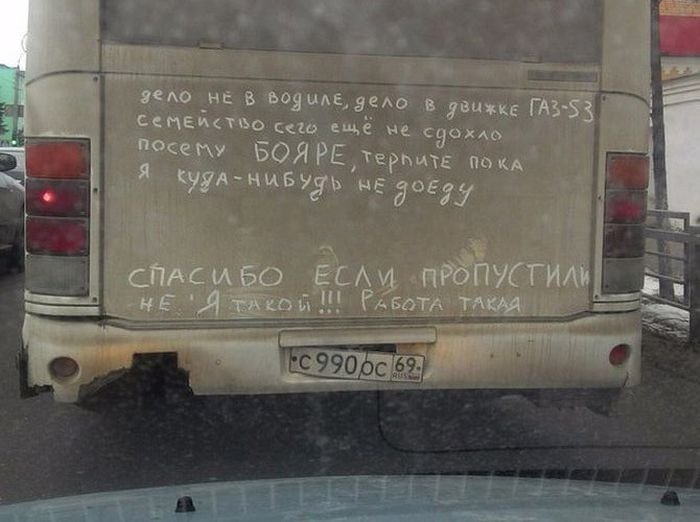 дело не в водиле, дело в движке ГАЗ-53
семейство сего ещё не сдохло
посему БОЯРЕ, терпите пока
я куда-нибудь не доеду
СПАСИБО ЕСЛИ ПРОПУСТИЛИ
НЕ Я ТАКОЙ!!! РАБОТА ТАКАЯ
С 990 ОС 69
RUS